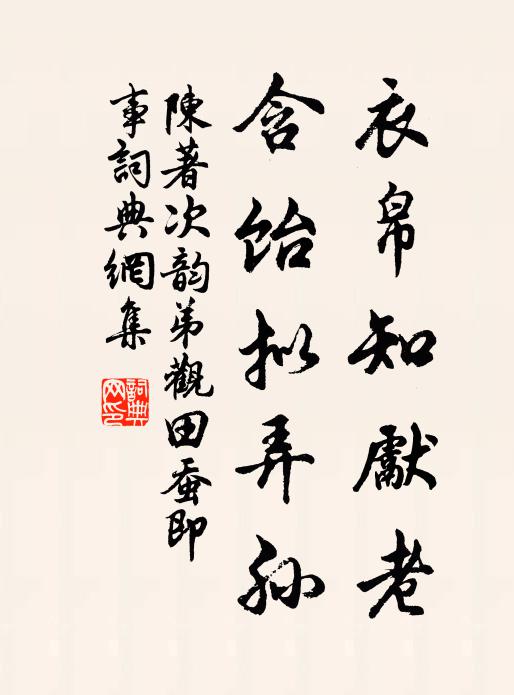 衣帛知獻老
含飴拟弄孫
陳著次韵弟觀田蚕即
事詞典網集
詞典
网印